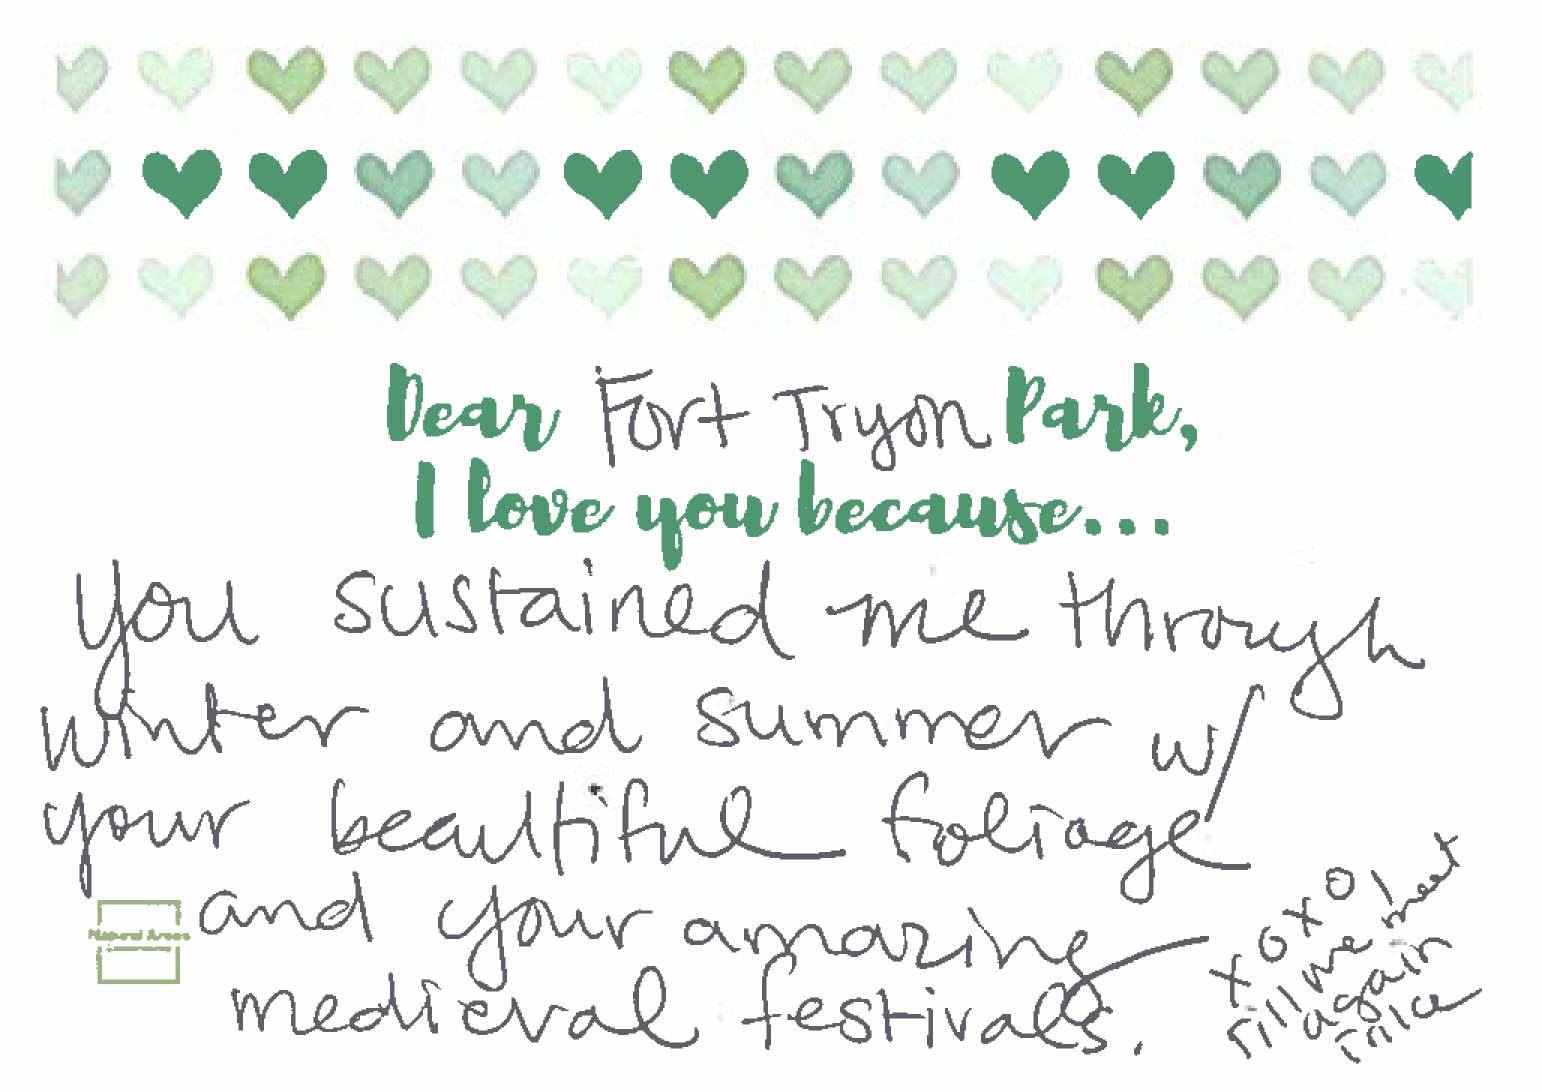 Dear Fort Tryon Park,
I love you because...
you sustained me through
winter and summer w/
your beautiful foliage
and your amazing
medieval festivals.
Natural Areas
xoxo,
till we meet
again